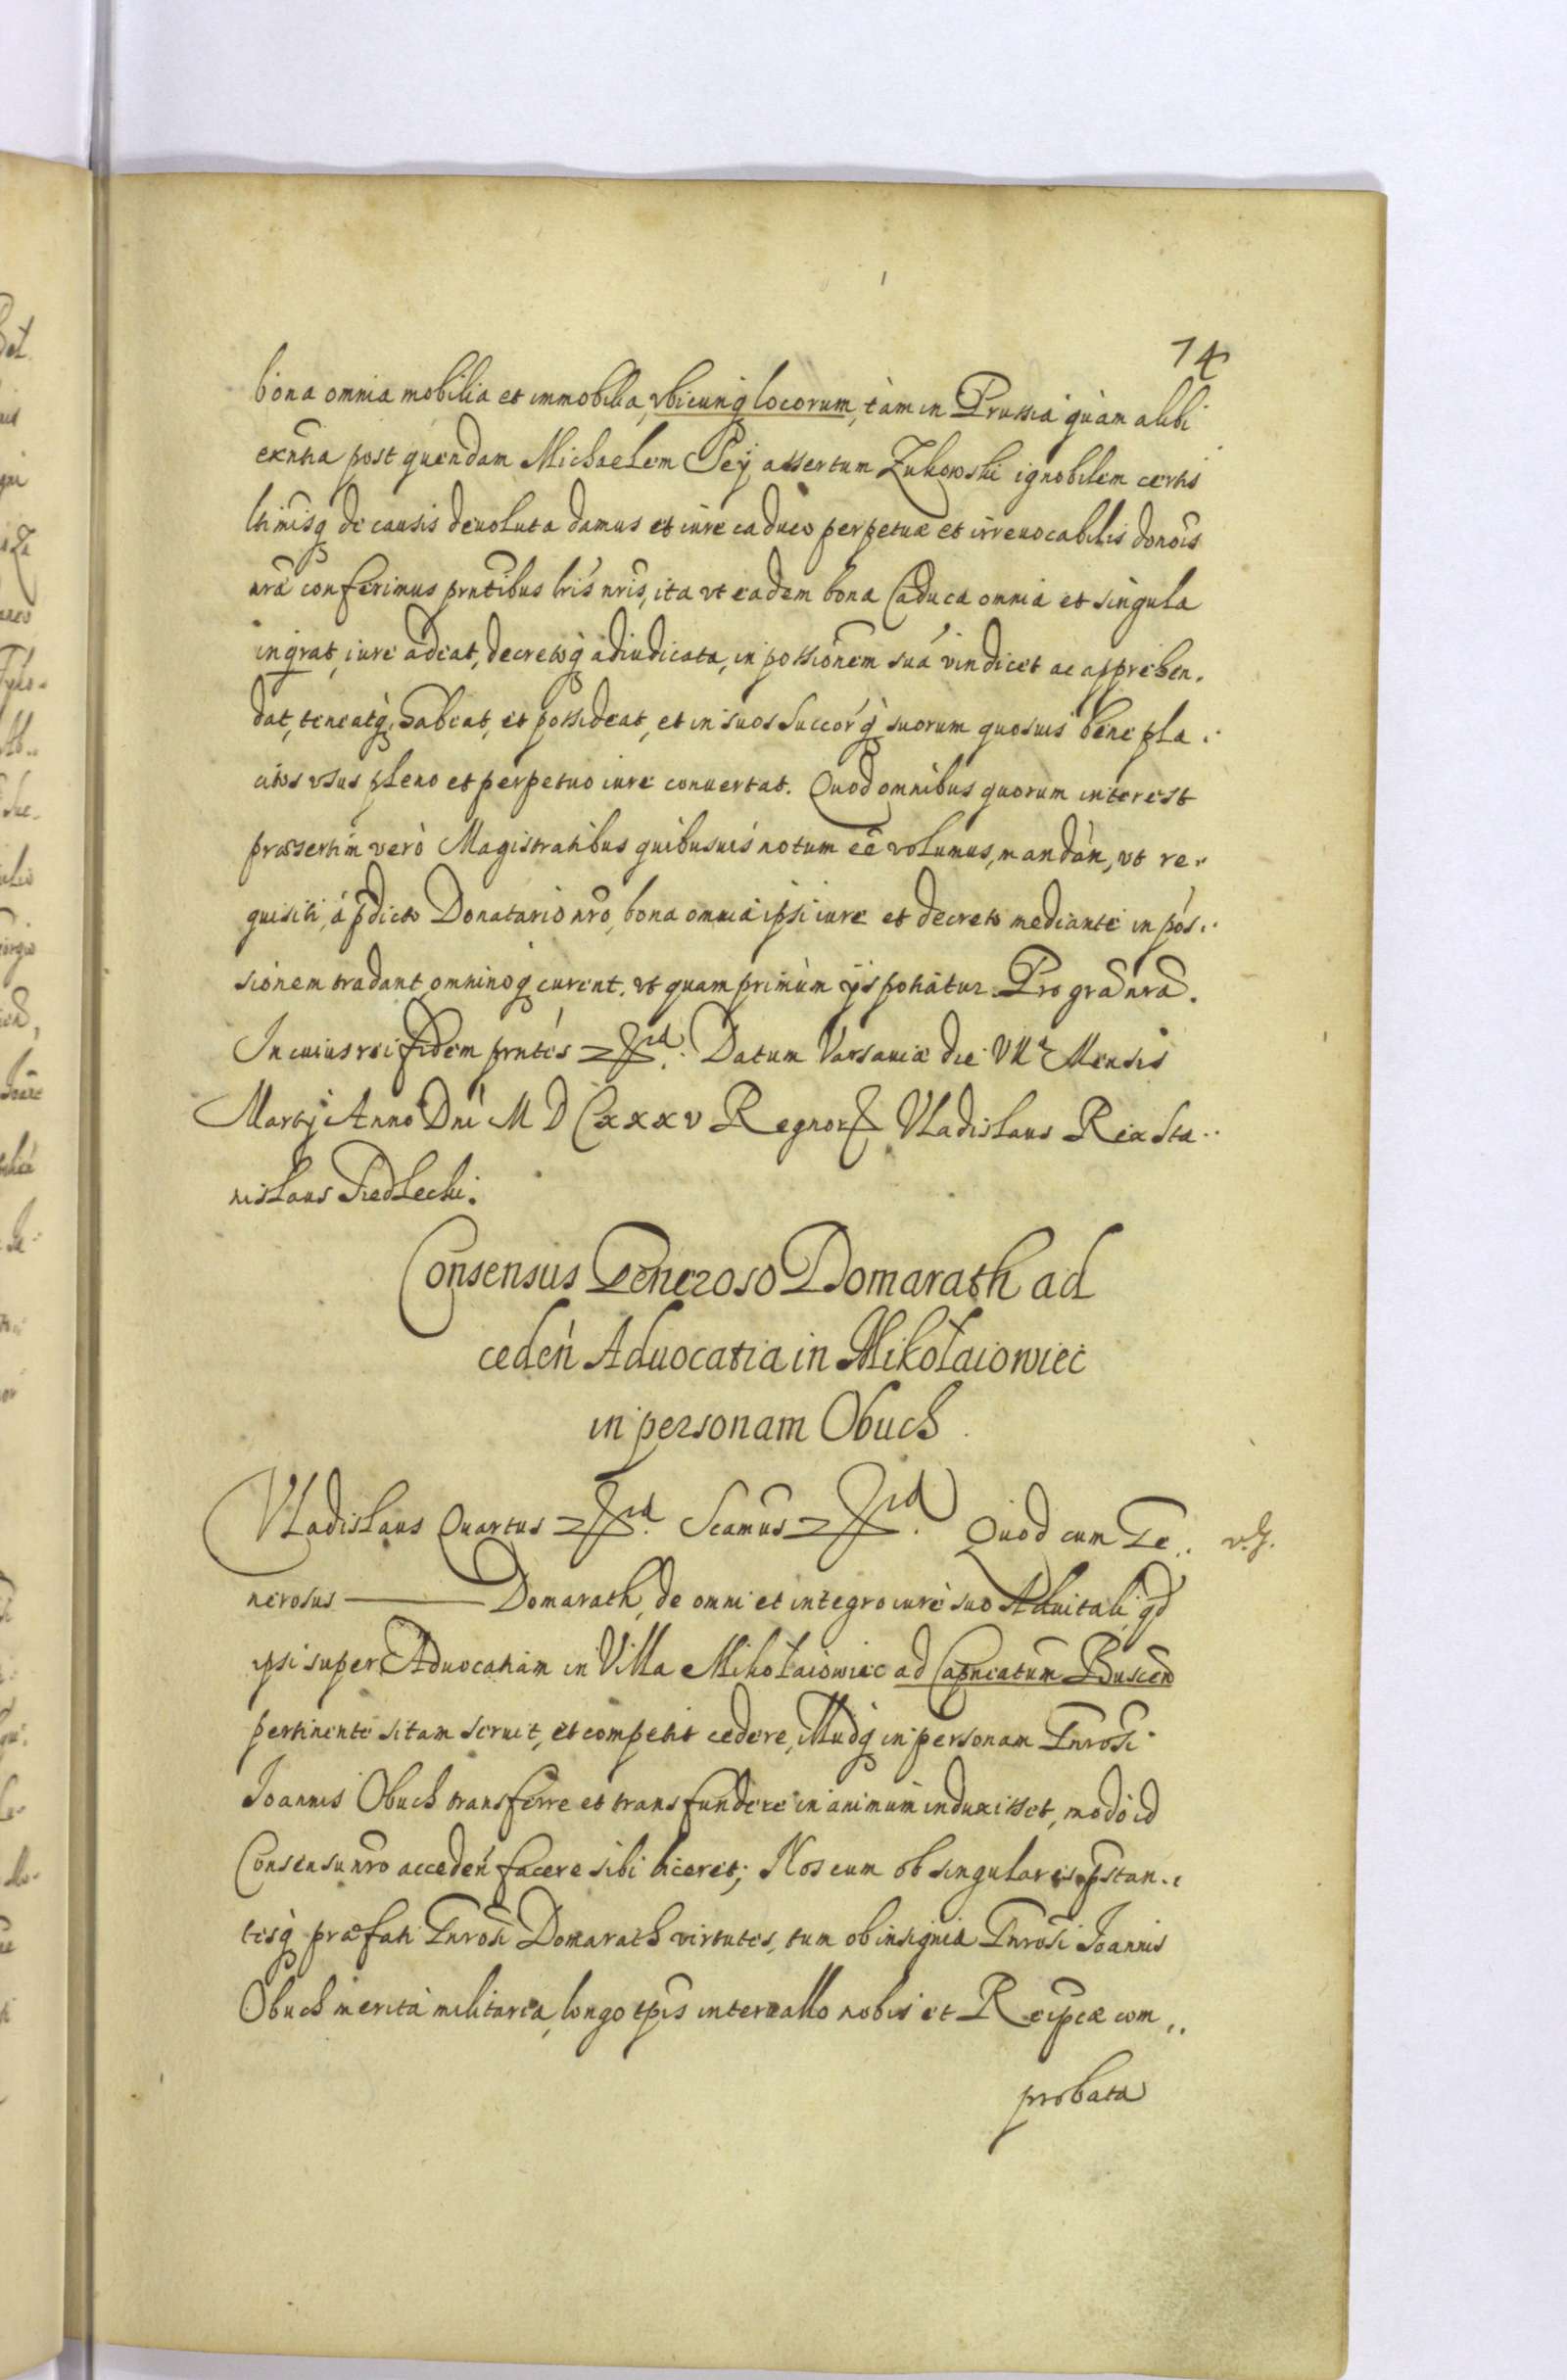 74
bona omnia mobilia et immobilia, vbicunq locorum, tàm in Prussia quàm alibi
exntia post quendam Michaelem Pey assertum Zukowski ignobilem certis
ltimisq de causis deuoluta damus et iure caduco perpetuæ et irreuocabilis donois
nræ conferimus prntibus lris nris, ita vt eadem bona Caduca omnia et singula
ingrat, iure adeat, decretoq adiudicata, in possionem suã vindicet ac apprehen.
dat, teneatq, habeat, et possideat, et in suos Succorq suorum quosuis bene pla..
citos vsus pleno et perpetuo iure conuertat. Quod omnibus quorum interest
præsertim verò Magistratibus quibusuis notum eê volumus, mandán, vt re..
quisiti, á pdicto Donatario nro, bona omnia ipsi iure et decreto mediante in pos..
sionem tradant, omninoq curent, vt quam primùm ijs potiatur. Pro gra nra.
In cuius rei fidem prntes Datum Varsauiæ die VII Mensis
Martij Anno Dni M D Cxxxv Regnor Vladislaus Rex Sta..
nislaus Siedlecki.
Consensus Generoso Domarath ad
cedeń Aduocatia in Mikołaiowiec
in personam Obuch
Vladislaus Quartus Scamus Quod cum Ge..
nerosus — Domarath, de omni et integro iure suo Aduitali qd
ipsi super Aduocatiam in Villa Mikołaiowiec ad Capneatum Buscen
pertinente sitam seruit, et competit cedere, illudq in personam Gnrosi
Joannis Obuch transferre et transfundere in animum induxisset, modò id
Consensu nro accedeń facere sibi liceret; Nos cum ob singulares pstan..
tesq præfati Gnrosi Domarath virtutes, tum ob insignia Gnrosi Joannis
Obuch merita militaria, longo tpis interuallo nobis et Reipcæ com..
probata